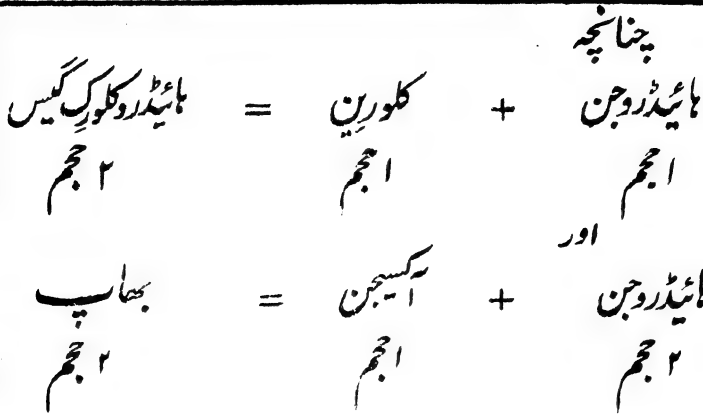 چنانچہ
ہائیڈروجن + کلورین = ہائیڈروکلورک گیس
۱ حجم ۱ حجم ۲ حجم
اور
ہائیڈروجن + آکسیجن = بھاپ
۲ حجم ۱ حجم ۲ حجم